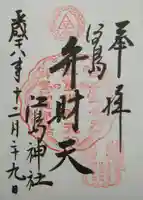 奉拝
江島
弁財天
江島神社
十二月二十九日